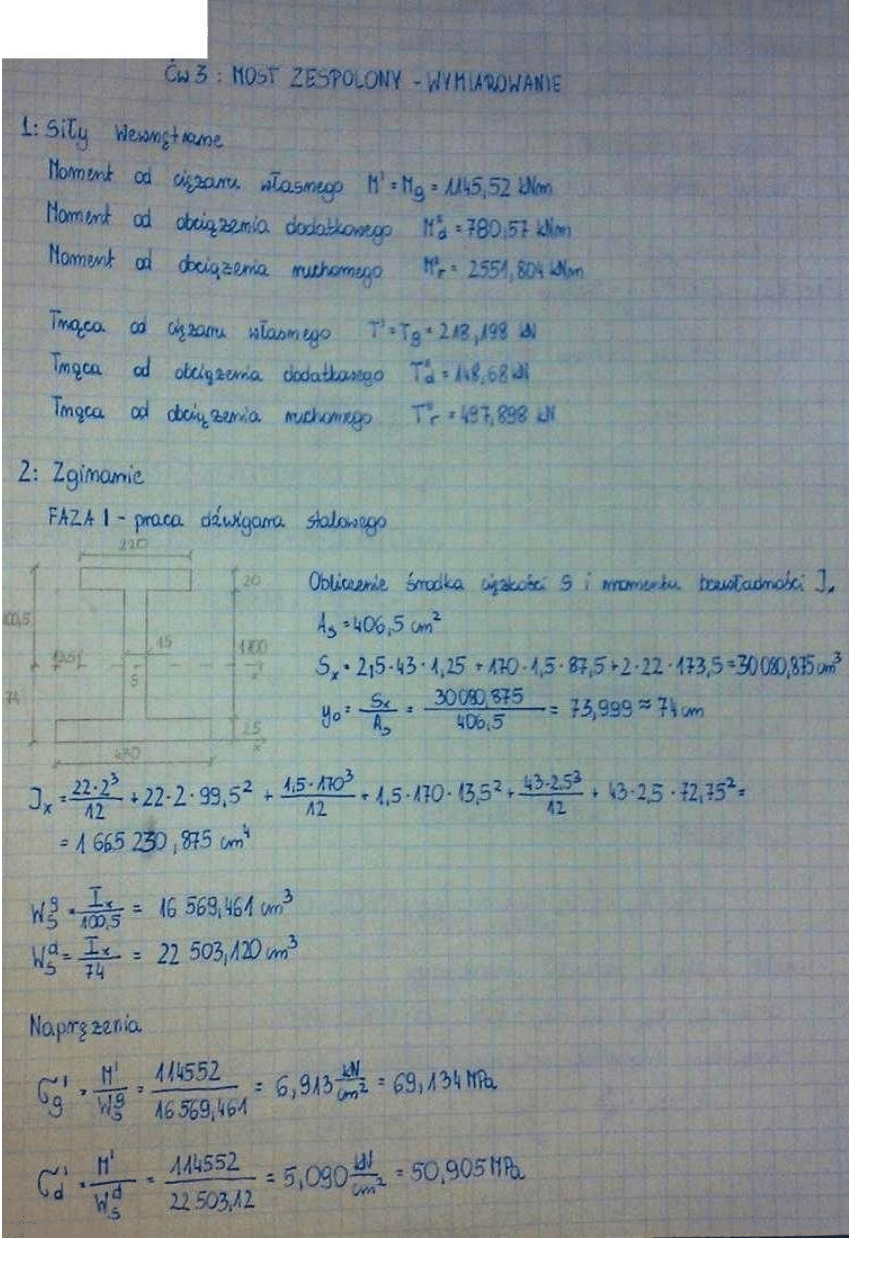 Ćw 3 : MOST ZESPOLONY - WYMIAROWANIE
1: Siły Wewnętrzne
Moment od ciężaru własnego M' = Mg = 1145,52 kNm
Moment od obciążenia dodatkowego M"d = 780,57 kNm
Moment od obciążenia ruchomego M"r = 2551,804 kNm
Tnąca od ciężaru własnego T' = Tg = 218,198 kN
Tnąca od obciążenia dodatkowego T"d = 148,68 kN
Tnąca od obciążenia ruchomego T"r = 497,898 kN
2: Zginanie
FAZA I - praca dźwigara stalowego
220
20
100,5
15
13,5
S
74
25
430
Obliczenie środka ciężkości S i momentu bezwładności Jx
As = 406,5 cm²
Sx = 2,5·43·1,25 + 170·1,5·87,5 + 2·22·173,5 = 30080,875 cm³
y₀ = Sx/As = 30080,875/406,5 = 73,999 ≈ 74 cm
Jx = 22·2³/12 + 22·2·99,5² + 1,5·170³/12 + 1,5·170·13,5² + 43·2,5³/12 + 43·2,5·72,75² =
= 1 665 230,875 cm⁴
Wsᵍ = Ix/100,5 = 16 569,461 cm³
Wsᵈ = Ix/74 = 22 503,120 cm³
Naprężenia
σg' = M'/Wsᵍ = 114552/16569,461 = 6,913 kN/cm² = 69,134 MPa
σd' = M'/Wsᵈ = 114552/22503,12 = 5,090 kN/cm² = 50,905 MPa